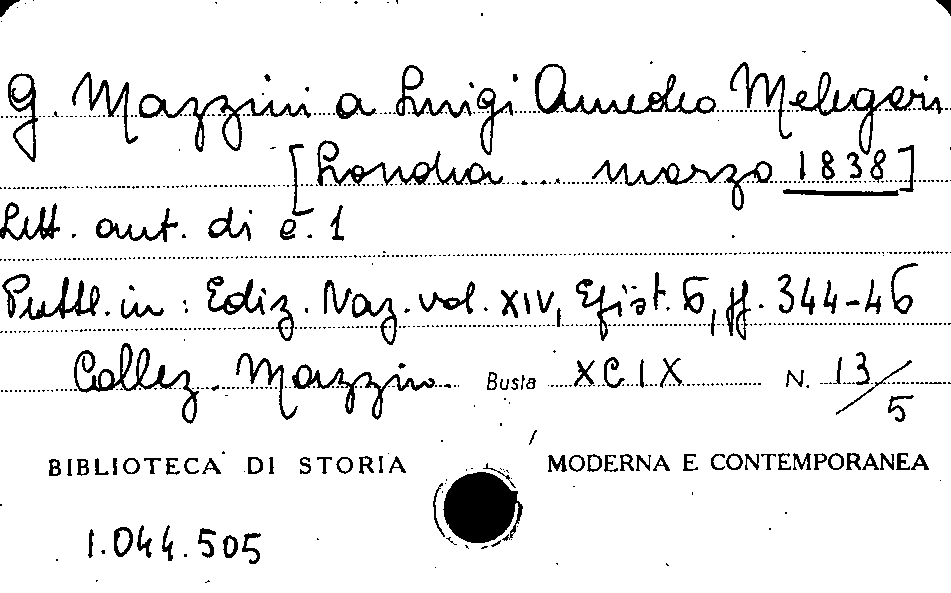 G. Mazzini a Luigi Amedeo Melegari
[Londra ... marzo 1838]
Lett. aut. di c. 1
Pubbl. in : Ediz. Naz. vol. XIV, Epist. 6, pp. 344-46
Collez. Mazzini Busta XCIX N. 13/5
BIBLIOTECA DI STORIA MODERNA E CONTEMPORANEA
1.044.505